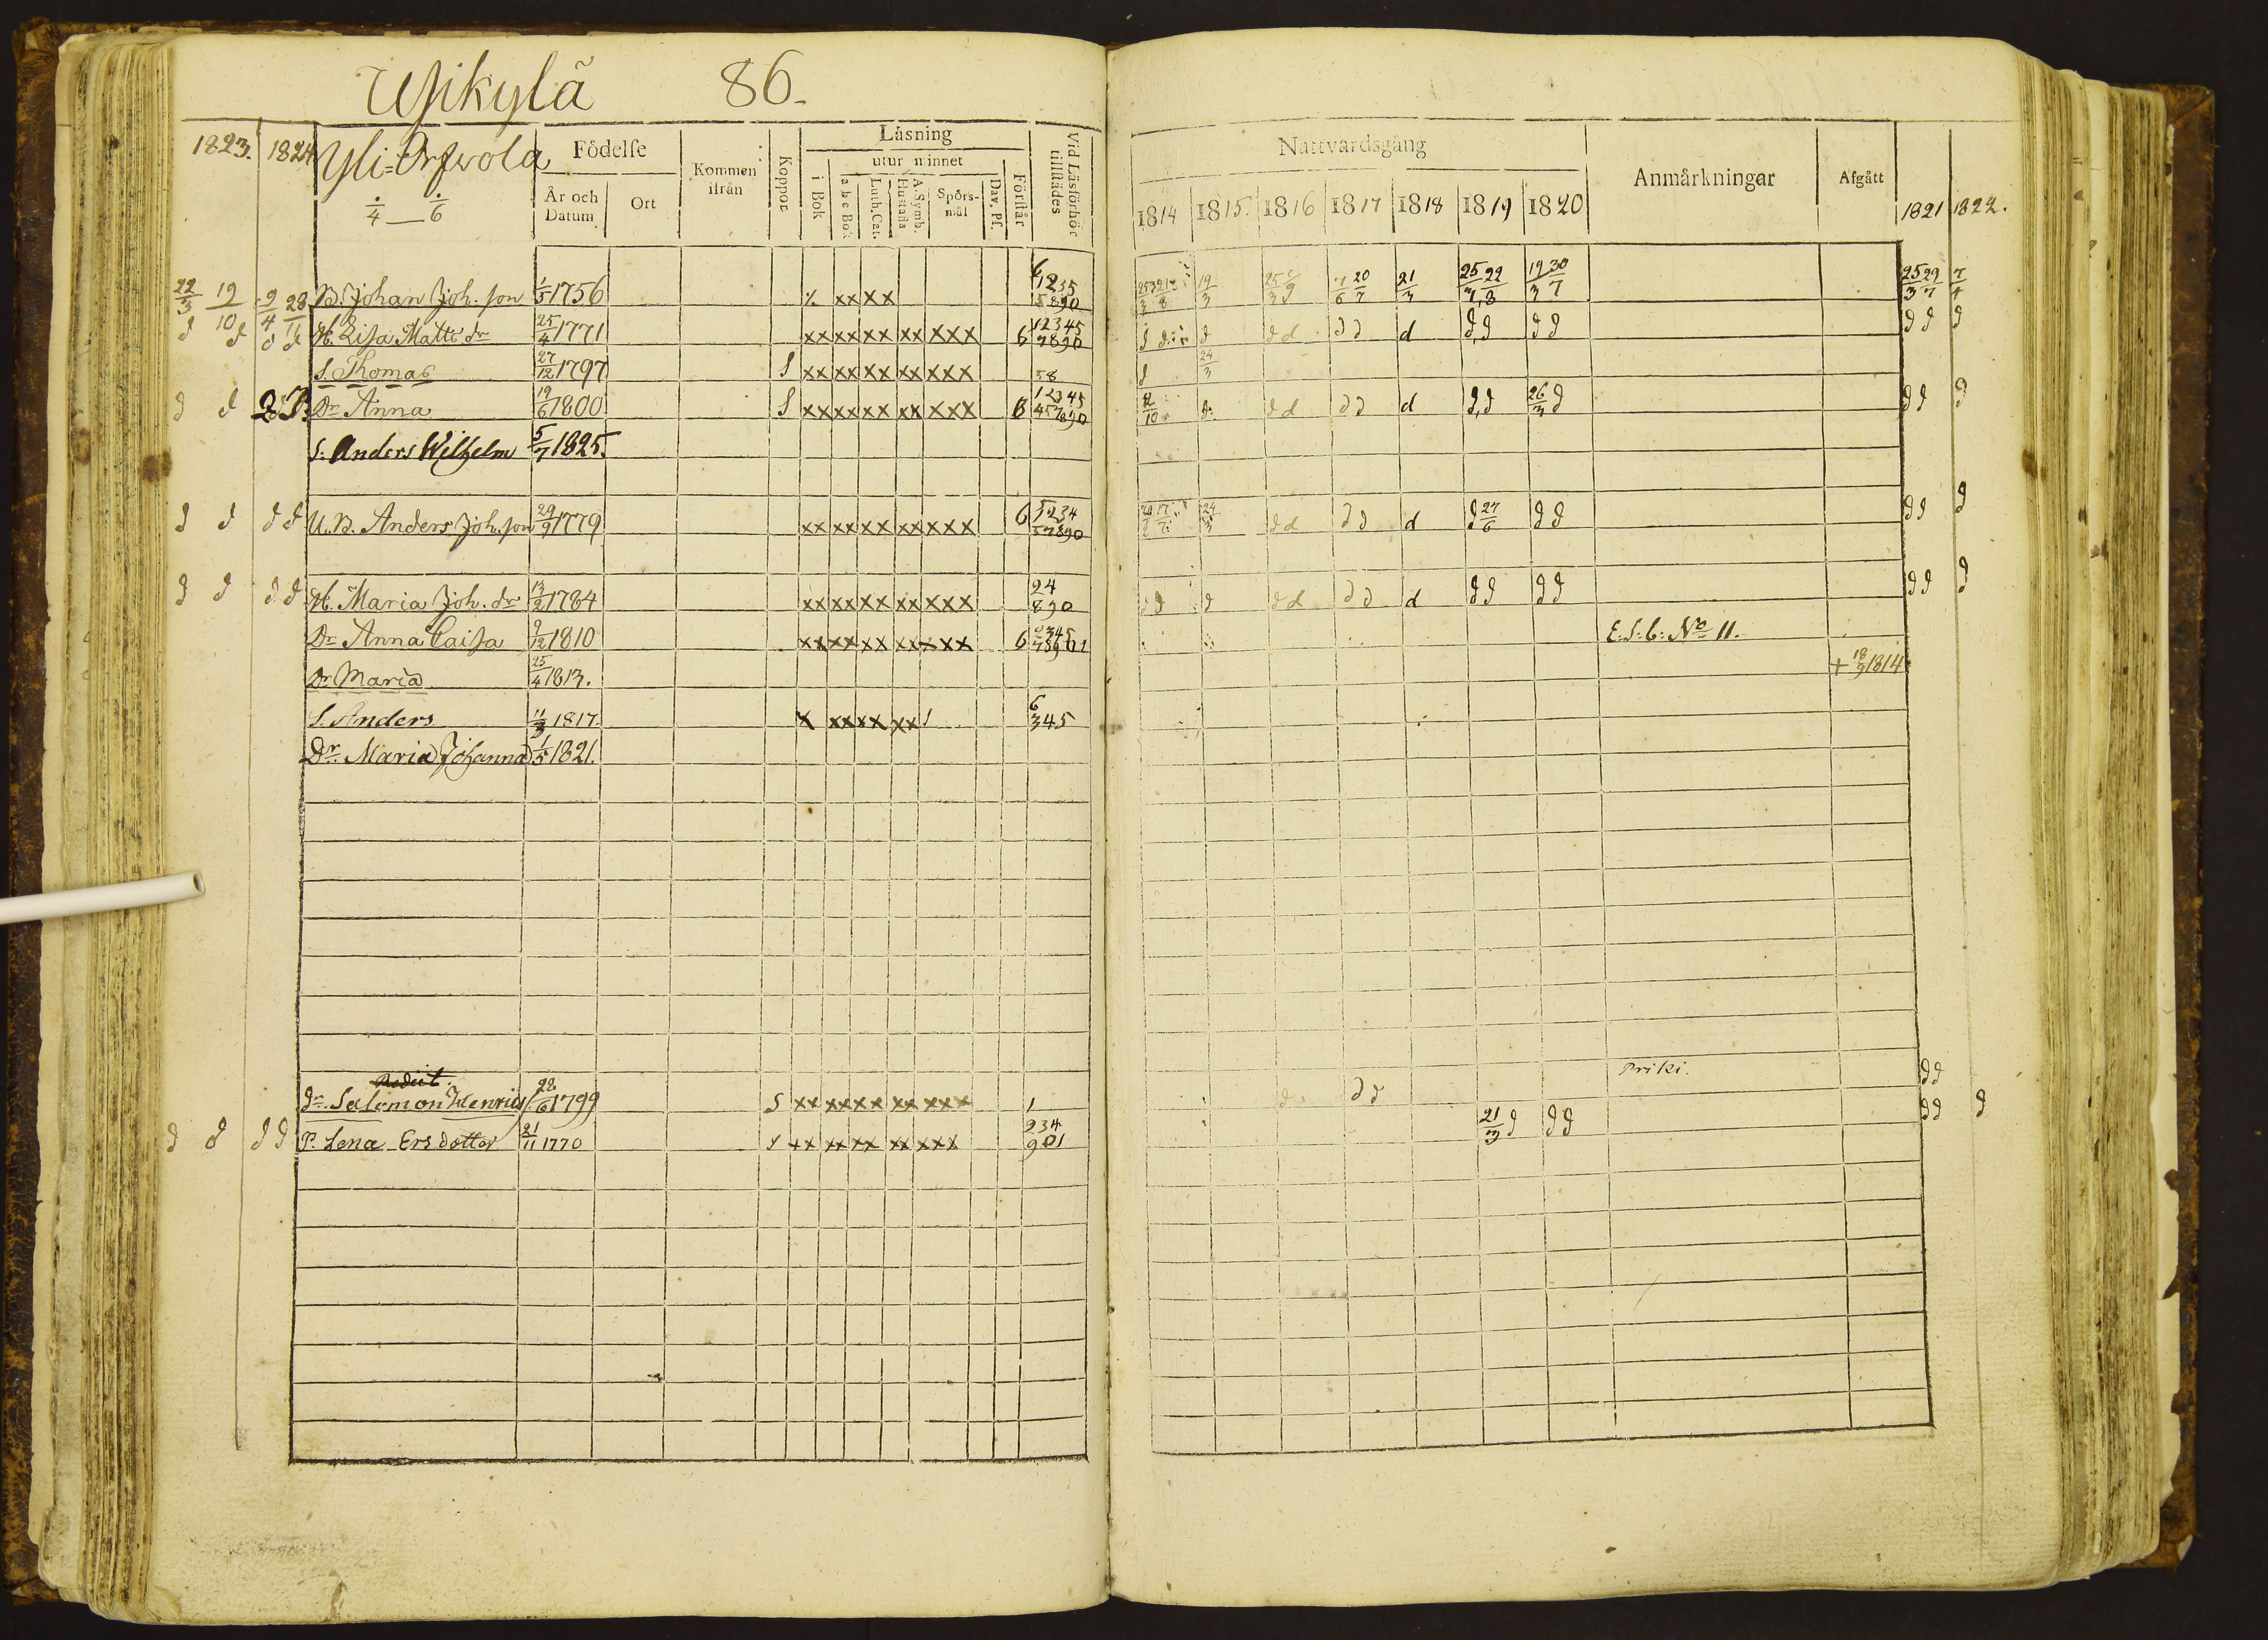 Ylikylä 86.
1823. 1824 Yli=Orfvola Födelse Kommen ifrån Koppor Läsning Vid Läsförhör tillstädes
År och Datum Ort i Bok utur minnet abc Bok Luth.Cat. A.Symb. Hustafla Spörsmål Dav. Pf. Förstår
4 — 6
Nattvardsgång Anmärkningar Afgått
1814 1815. 1816 1817 1818 1819 1820 1821 1822.
22/3 19/10 9/4 28/11 B. Johan Joh. son 1/5 1756 xx xx 6 1235 5890 19/3 7/6 20/7 21/3 19/3 30/7 25/3 29/7 7/4
d d d d H. Lisa Matts dr 25/4 1771 xx xx xx xx xxx 6 12345 7890 d d d d d d d d d d d d
S. Thomas 27/12 1797 S xx xx xx xx xxx 58 d 24/3
d d Dr Anna 19/6 1800 S xx xx xx xx xxx 6 12345 457890 d d d d d d d 26/3 d d d d
S: Anders Wilhelm 5/7 1825.
d d d d U.B. Anders Joh. son 29/9 1779 xx xx xx xx xxx 6 5234 57890 24/3 d d d d d d 27/6 d d d d d
d d d d H. Maria Joh. dr 13/2 1784 xx xx xx xx xxx 24 890 d d d d d d d d d d d d d d d
Dr Anna Caisa 9/12 1810 xx xx xx xx xxx 6 2345 78901 E.S.b: No 11.
Dr Maria 25/4 1813. + 18/9 1814
S. Anders 11/3 1817 x xx xx xx / 6 345
Dr. Maria Johanna 1/5 1821.
Rediit.
dr. Salomon Henrics 22/6 1799 S xx xx xx xx xxx 1 d d d Priki. d d
d d d d P. Lena Ersdotter 21/11 1770 xx xx xx xx xxx 234 901 21/3 d d d d d d